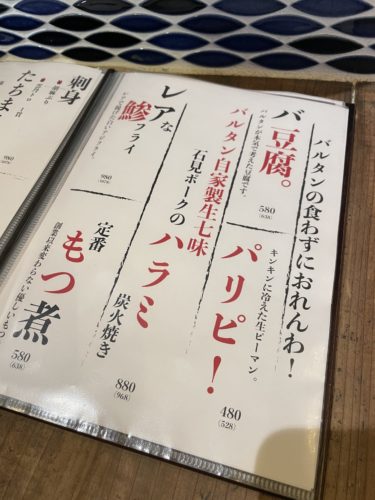 バルタンの食わずにおれんわ！
バ豆腐。
バルタンが本気で考えた豆腐です。
580
(638)
パリピ！
キンキンに冷えた生ピーマン。
480
(528)
バルタン自家製生七味
石見ポークの
ハラミ
炭火焼き
880
(968)
レアな
鰺フライ
980
定番
もつ煮
創業以来変わらない優しいもつ
580
(638)
刺身
たちま